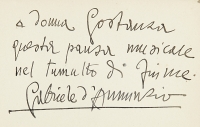 a donna Gostanza
questa pausa musicale
nel tumulto di Fiume.
Gabriele d'Annunzio